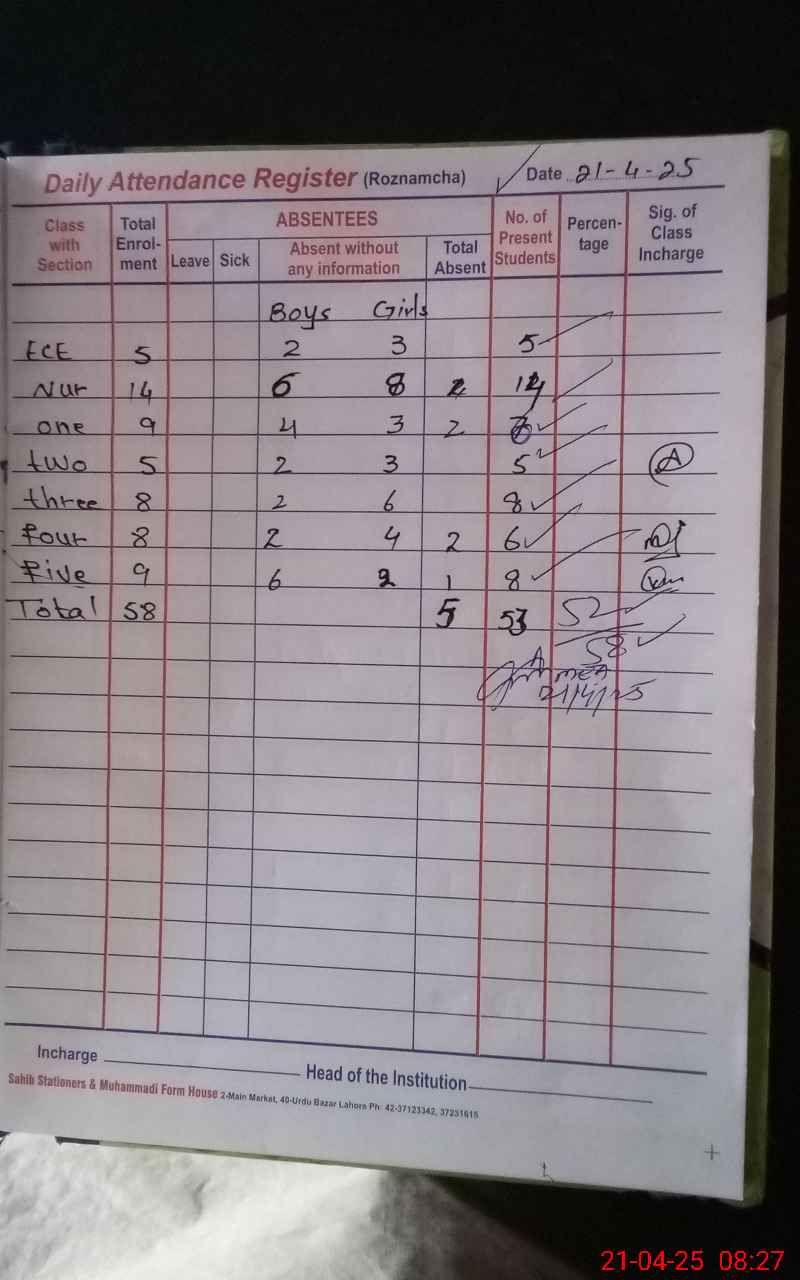 Daily Attendance Register (Roznamcha) Date 21-4-25
Class with Section Total Enrol-ment ABSENTEES No. of Present Students Percen-tage Sig. of Class Incharge
Leave Sick Absent without any information Total Absent
Boys Girls
ECE 5 2 3 5
Nur 14 6 8 2 14
one 9 4 3 2 7
two 5 2 3 5
three 8 2 6 8
four 8 2 4 2 6
five 9 6 2 1 8
Total 58 5 53 52
58
21/4/25
Incharge Head of the Institution
Sahib Stationers & Muhammadi Form House 2-Main Market, 40-Urdu Bazar Lahore Ph: 42-37123342, 37231615
21-04-25 08:27